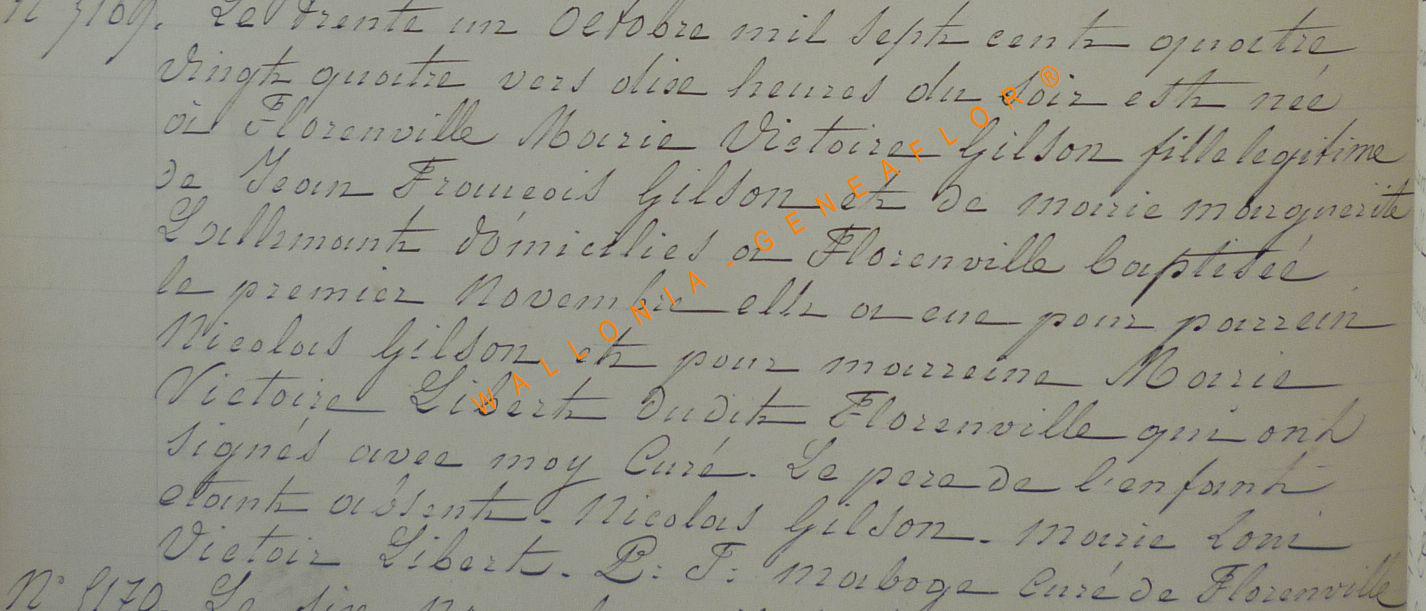 N° 5169. Le trente un Octobre mil sept cent quatre
vingt quatre vers dixe heures du soir est née
à Florenville Marie Victoire Gilson fille legitime
de Jean François Gilson et de marie marguerite
Lallemant domicilies a Florenville baptisée
le premier Novembre elle a eue pour parrein
Nicolas Gilson et pour marreine Marie
Victoire Libert dudit Florenville qui ont
signés avec moy Curé. Le pere de l'enfant
etant absent. Nicolas Gilson. Marie Loui
Victoir Libert. P: F: Maboge Curé de Florenville
N° 5170. Le six
WALLONIA - GENEAFLOR ®